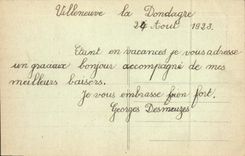 Villeneuve la Dondagre
24 Août 1923.
Étant en vacances je vous adresse
un gracieux bonjour accompagné de mes
meilleurs baisers.
Je vous embrasse bien fort.
Georges Desmeuzes